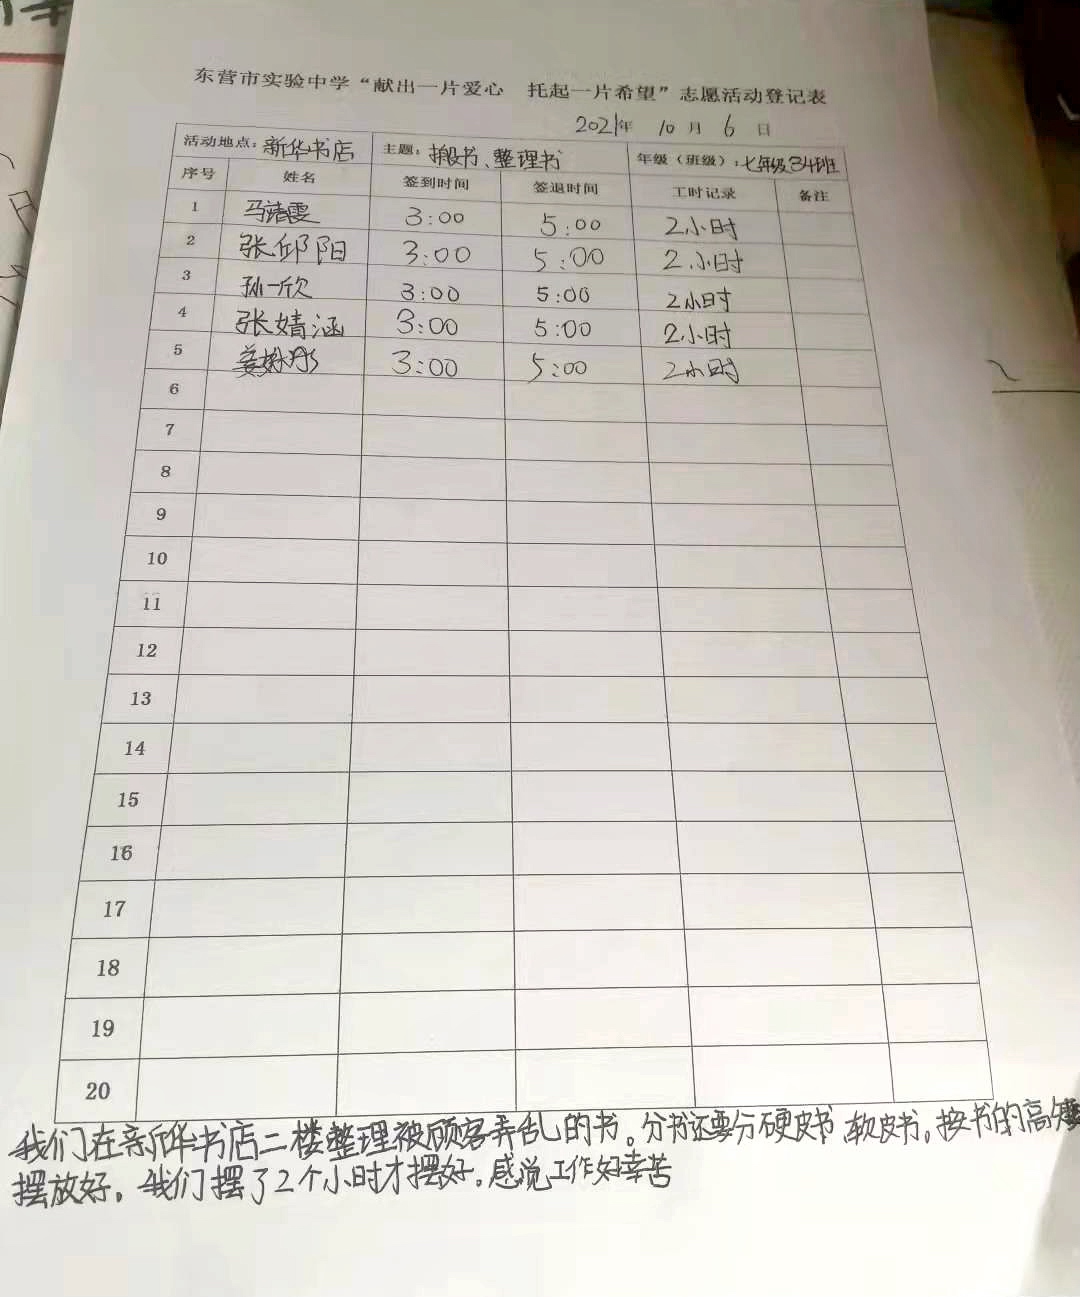 东营市实验中学“献出一片爱心 托起一片希望”志愿活动登记表
2021年 10月 6日
活动地点：新华书店 主题：搬书、整理书 年级（班级）：七年级34班
序号 姓名 签到时间 签退时间 工时记录 备注
1 马靖雯 3:00 5:00 2小时
2 张邱阳 3:00 5:00 2小时
3 孙一欣 3:00 5:00 2小时
4 张婧涵 3:00 5:00 2小时
5 姜 彤 3:00 5:00 2小时
6
7
8
9
10
11
12
13
14
15
16
17
18
19
20
我们在新华书店二楼整理被顾客弄乱的书。分书还要分硬皮书、软皮书。按书的高矮
摆放好。我们摆了2个小时才摆好。感觉工作好辛苦